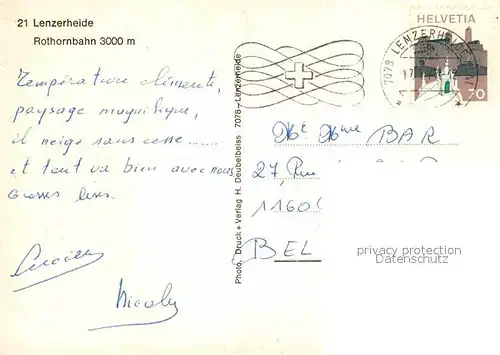 21 Lenzerheide
Rothornbahn 3000 m
HELVETIA
7078 LENZERHEIDE
70
Température clémente,
paysage magnifique,
il neige sans cesse......
et tout va bien avec nous
Grosses bises.
Lucien
Nicole
Photo, Druck + Verlag H. Deubelbeiss 7078-Lenzerheide
Mr Mme BAR
27, Rue
1160
BEL
privacy protection
Datenschutz